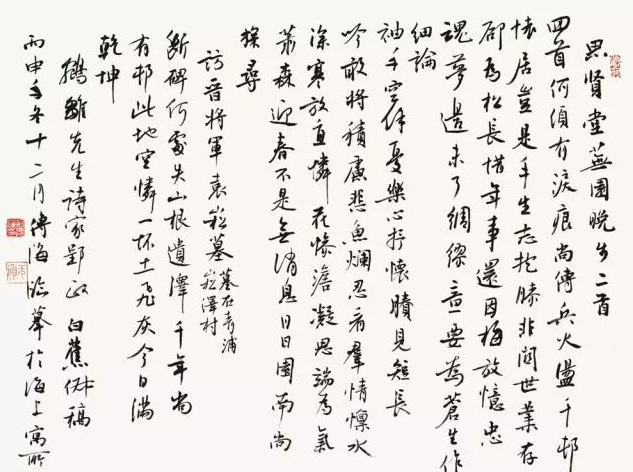 思賢堂蕪園晚步二首
回首何須有淚痕尚傳兵火盪千邨
懷居豈是平生志抱膝非關世業存
卻為松長惜年事還因梅放憶忠
魂夢邊未了綢繆意要為蒼生作
細論
袖手空餘憂樂心抒懷牘見短長
吟敢將積慮悲魚爛忍看羣情懍水
深寒放直憐花慘澹凝思端為氣
蕭森迎春不是無消息日日園南尚
探尋
訪晉將軍袁崧墓
墓在青浦
崧澤村
斷碑何處失山根遺澤千年尚
有邨此地空憐一抔土飛灰今日滿
乾坤
鵷雛先生詩家郢政 白蕉稿
丙申年冬十二月傳海臨摹於海上寓所